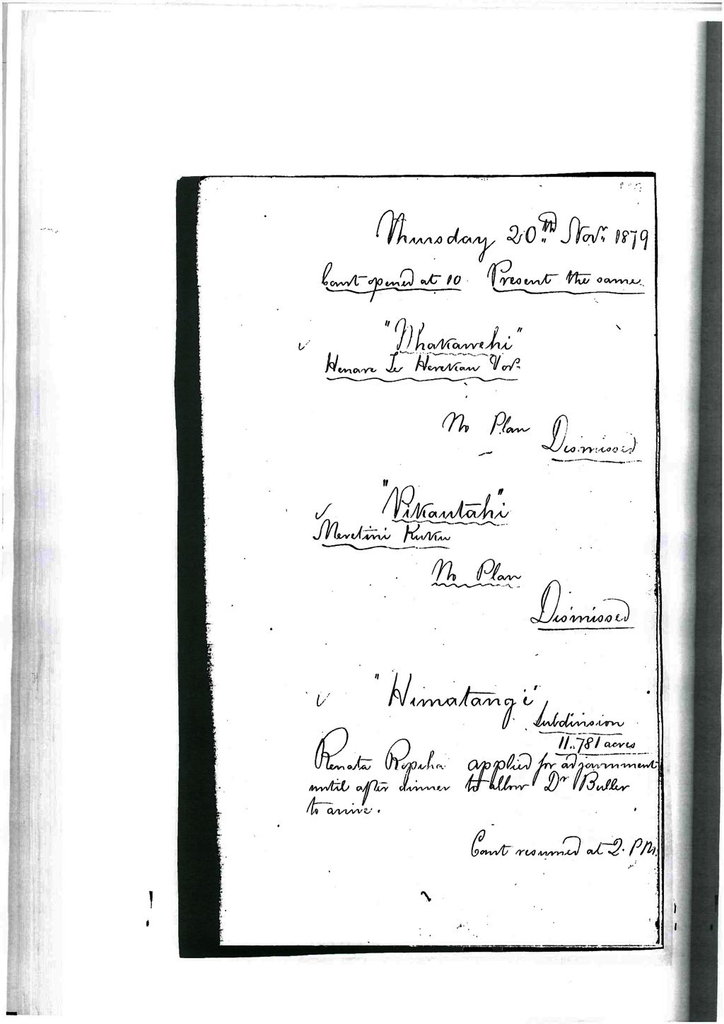 Thursday 20th Novr 1879
Court opened at 10 Present the same
"Whakawehi"
Henare Te Herekau
No Plan
Dismissed
"Pikautahi"
Meretini Kuku
No Plan
Dismissed
"Himatangi"
Subdivision
11..781 acres
Renata Ropeha applied for adjournment
until after dinner to allow Dr Buller
to arrive.
Court resumed at 2. PM.